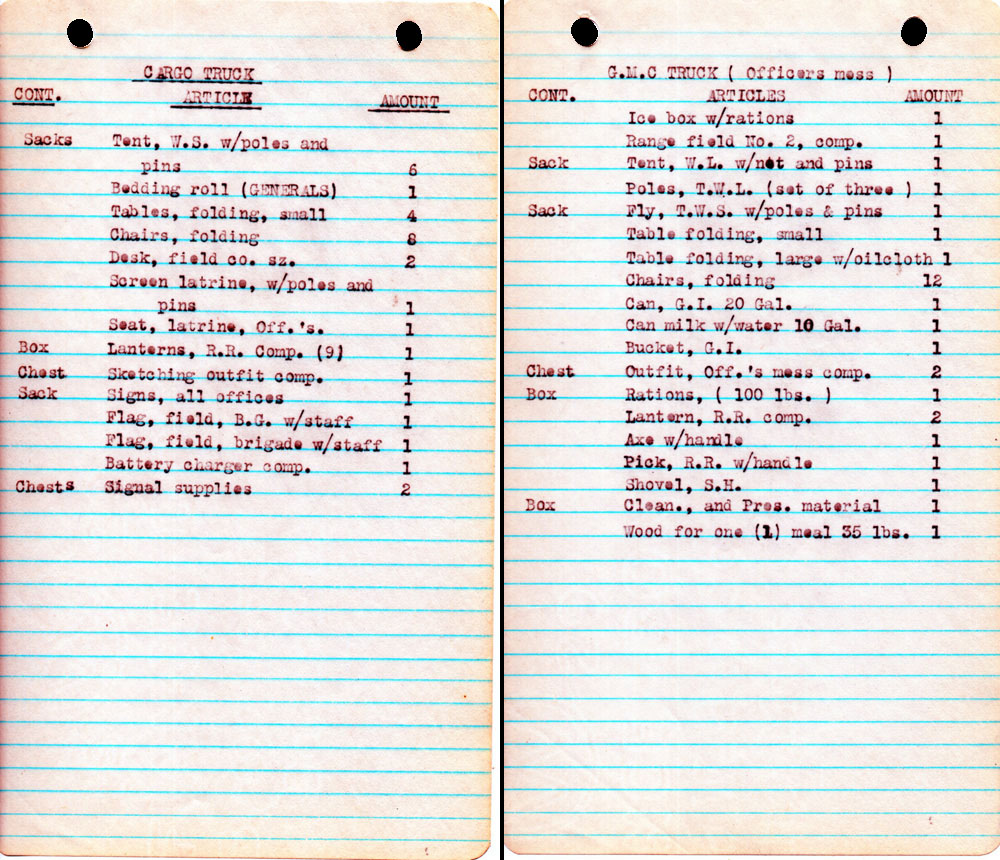 CARGO TRUCK
CONT. ARTICLE AMOUNT
Sacks Tent, W.S. w/poles and
pins 6
Bedding roll (GENERALS) 1
Tables, folding, small 4
Chairs, folding 8
Desk, field co. sz. 2
Screen latrine, w/poles and
pins 1
Seat, latrine, Off.'s. 1
Box Lanterns, R.R. Comp. (9) 1
Chest Sketching outfit comp. 1
Sack Signs, all offices 1
Flag, field, B.G. w/staff 1
Flag, field, brigade w/staff 1
Battery charger comp. 1
Chests Signal supplies 2
G.M.C TRUCK ( Officers mess )
CONT. ARTICLES AMOUNT
Ice box w/rations 1
Range field No. 2, comp. 1
Sack Tent, W.L. w/net and pins 1
Poles, T.W.L. (set of three ) 1
Sack Fly, T.W.S. w/poles & pins 1
Table folding, small 1
Table folding, large w/oilcloth 1
Chairs, folding 12
Can, G.I. 20 Gal. 1
Can milk w/water 10 Gal. 1
Bucket, G.I. 1
Chest Outfit, Off.'s mess comp. 2
Box Rations, ( 100 lbs. ) 1
Lantern, R.R. comp. 2
Axe w/handle 1
Pick, R.R. w/handle 1
Shovel, S.H. 1
Box Clean., and Pres. material 1
Wood for one (1) meal 35 lbs. 1